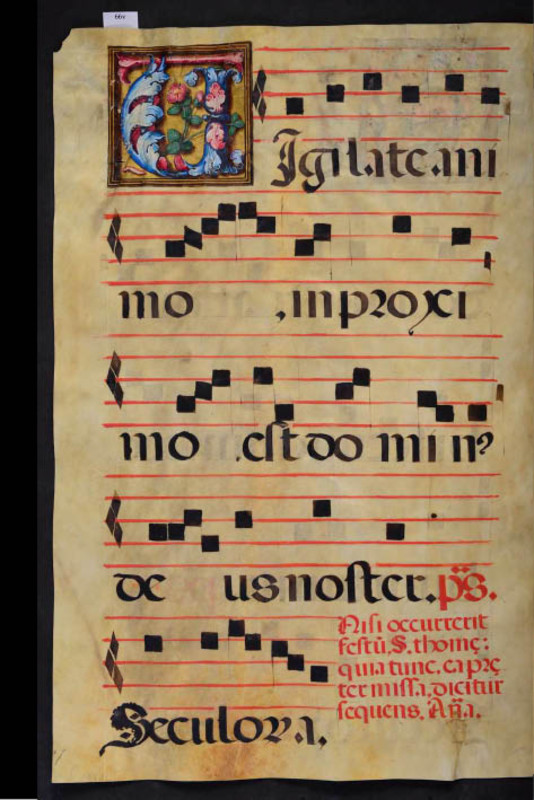 VIgilate ani
mo, in proxi
mo est do min9
de us noster. ps.
Nisi occurrerit
festū. S. thomę:
quia tunc, ea pręter missa, dicitur
sequens. Aña.
Seculora.